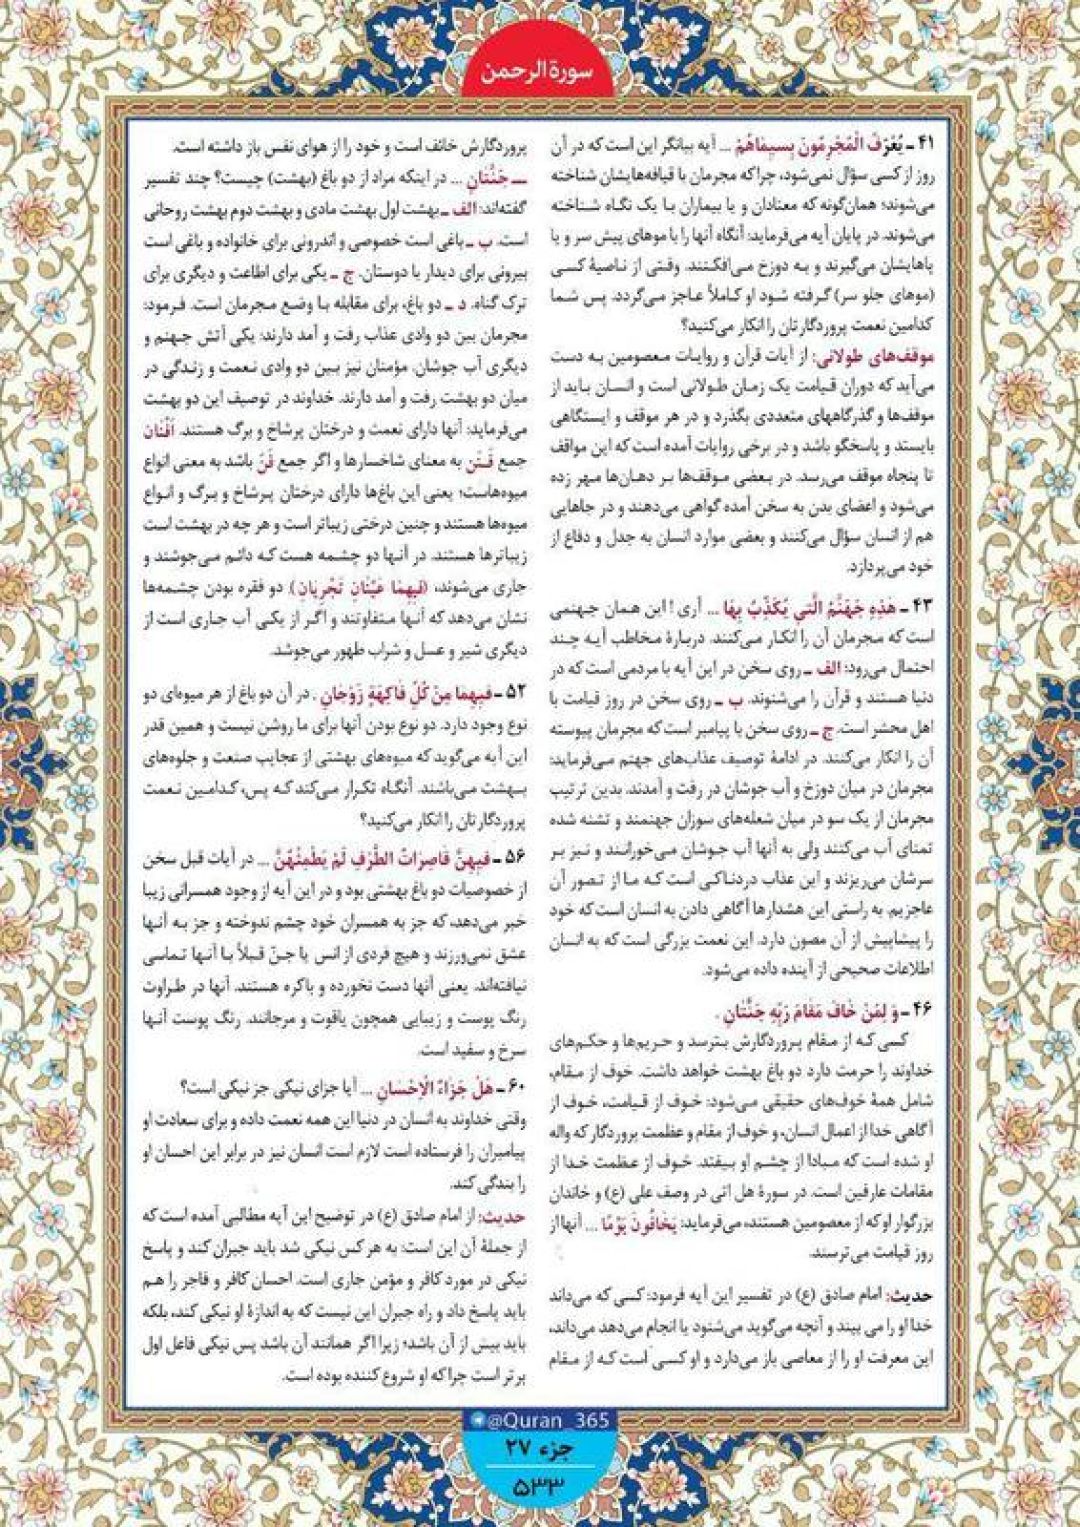 سورةالرحمن
۴۱ ـ يُعْرَفُ الْمُجْرِمُونَ بِسِيمَاهُمْ ... آیه بیانگر این است که در آن
روز از کسی سؤال نمی‌شود، چراکه مجرمان با قیافه‌هایشان شناخته
می‌شوند؛ همان‌گونه که معتادان و یا بیماران با یک نگاه شناخته
می‌شوند. در پایان آیه می‌فرماید: آنگاه آنها را با موهای پیش سر و یا
پاهایشان می‌گیرند و به دوزخ می‌افکنند. وقتی از ناصیهٔ کسی
(موهای جلو سر) گرفته شود او کاملاً عاجز می‌گردد. پس شما
کدامین نعمت پروردگارتان را انکار می‌کنید؟
موقف‌های طولانی: از آیات قرآن و روایات معصومین به دست
می‌آید که دوران قیامت یک زمان طولانی است و انسان باید از
موقف‌ها و گذرگاههای متعددی بگذرد و در هر موقف و ایستگاهی
بایستد و پاسخگو باشد و در برخی روایات آمده است که این مواقف
تا پنجاه موقف می‌رسد. در بعضی موقف‌ها بر دهان‌ها مهر زده
می‌شود و اعضای بدن به سخن آمده گواهی می‌دهند و در جاهایی
هم از انسان سؤال می‌کنند و بعضی موارد انسان به جدل و دفاع از
خود می‌پردازد.
۴۳ ـ هَذِهِ جَهَنَّمُ الَّتِي يُكَذِّبُ بِهَا ... آری! این همان جهنمی
است که مجرمان آن را انکار می‌کنند. دربارهٔ مخاطب آیه چند
احتمال می‌رود: الف ـ روی سخن در این آیه با مردمی است که در
دنیا هستند و قرآن را می‌شنوند. ب ـ روی سخن در روز قیامت با
اهل محشر است. ج ـ روی سخن با پیامبر است که مجرمان پیوسته
آن را انکار می‌کنند. در ادامهٔ توصیف عذاب‌های جهنم می‌فرماید:
مجرمان در میان دوزخ و آب جوشان در رفت و آمدند. بدین ترتیب
مجرمان از یک سو در میان شعله‌های سوزان جهنمند و تشنه شده
تمنای آب می‌کنند ولی به آنها آب جوشان می‌خورانند و نیز بر
سرشان می‌ریزند و این عذاب دردناکی است که ما از تصور آن
عاجزیم. به راستی این هشدارها آگاهی دادن به انسان است که خود
را پیشاپیش از آن مصون دارد. این نعمت بزرگی است که به انسان
اطلاعات صحیحی از آینده داده می‌شود.
۴۶ ـ وَ لِمَنْ خَافَ مَقَامَ رَبِّهِ جَنَّتَانِ .
کسی که از مقام پروردگارش بترسد و حریم‌ها و حکم‌های
خداوند را حرمت دارد دو باغ بهشت خواهد داشت. خوف از مقام،
شامل همهٔ خوف‌های حقیقی می‌شود: خوف از قیامت، خوف از
آگاهی خدا از اعمال انسان، و خوف از مقام و عظمت پروردگار که واله
او شده است که مبادا از چشم او بیفتد. خوف از عظمت خدا از
مقامات عارفین است. در سورهٔ هل اتی در وصف علی (ع) و خاندان
بزرگوار او که از معصومین هستند، می‌فرماید: يَخَافُونَ يَوْمًا ... آنها از
روز قیامت می‌ترسند.
حدیث: امام صادق (ع) در تفسیر این آیه فرمود: کسی که می‌داند
خدا او را می بیند و آنچه می‌گوید می‌شنود یا انجام می‌دهد می‌داند،
این معرفت او را از معاصی باز می‌دارد و او کسی است که از مقام
پروردگارش خائف است و خود را از هوای نفس باز داشته است.
ـ جَنَّتَانِ ... در اینکه مراد از دو باغ (بهشت) چیست؟ چند تفسیر
گفته‌اند: الف ـ بهشت اول بهشت مادی و بهشت دوم بهشت روحانی
است. ب ـ باغی است خصوصی و اندرونی برای خانواده و باغی است
بیرونی برای دیدار با دوستان. ج ـ یکی برای اطاعت و دیگری برای
ترک گناه. د ـ دو باغ، برای مقابله با وضع مجرمان است. فرمود:
مجرمان بین دو وادی عذاب رفت و آمد دارند: یکی آتش جهنم و
دیگری آب جوشان. مؤمنان نیز بین دو وادی نعمت و زندگی در
میان دو بهشت رفت و آمد دارند. خداوند در توصیف این دو بهشت
می‌فرماید: آنها دارای نعمت و درختان پرشاخ و برگ هستند. أَفْنَان
جمع فَنَن به معنای شاخسارها و اگر جمع فَنّ باشد به معنی انواع
میوه‌هاست؛ یعنی این باغ‌ها دارای درختان پرشاخ و برگ و انواع
میوه‌ها هستند و چنین درختی زیباتر است و هر چه در بهشت است
زیباترها هستند. در آنها دو چشمه هست که دائم می‌جوشند و
جاری می‌شوند، (فِيهِمَا عَيْنَانِ تَجْرِيَانِ). دو فقره بودن چشمه‌ها
نشان می‌دهد که آنها متفاوتند و اگر از یکی آب جاری است از
دیگری شیر و عسل و شراب طهور می‌جوشد.
۵۲ ـ فِيهِمَا مِنْ كُلِّ فَاكِهَةٍ زَوْجَانِ . در آن دو باغ از هر میوه‌ای دو
نوع وجود دارد. دو نوع بودن آنها برای ما روشن نیست و همین قدر
این آیه می‌گوید که میوه‌های بهشتی از عجایب صنعت و جلوه‌های
بهشت می‌باشند. آنگاه تکرار می‌کند که پس، کدامین نعمت
پروردگارتان را انکار می‌کنید؟
۵۶ ـ فِيهِنَّ قَاصِرَاتُ الطَّرْفِ لَمْ يَطْمِثْهُنَّ ... در آیات قبل سخن
از خصوصیات دو باغ بهشتی بود و در این آیه از وجود همسرانی زیبا
خبر می‌دهد، که جز به همسران خود چشم ندوخته و جز به آنها
عشق نمی‌ورزند و هیچ فردی از انس یا جنّ قبلاً با آنها تماسی
نیافته‌اند، یعنی آنها دست نخورده و باکره هستند. آنها در طراوت
رنگ پوست و زیبایی همچون یاقوت و مرجانند. رنگ پوست آنها
سرخ و سفید است.
۶۰ ـ هَلْ جَزَاءُ الْإِحْسَانِ ... آیا جزای نیکی جز نیکی است؟
وقتی خداوند به انسان در دنیا این همه نعمت داده و برای سعادت او
پیامبران را فرستاده است لازم است انسان نیز در برابر این احسان او
را بندگی کند.
حدیث: از امام صادق (ع) در توضیح این آیه مطالبی آمده است که
از جملهٔ آن این است: به هر کس نیکی شد باید جبران کند و پاسخ
نیکی در مورد کافر و مؤمن جاری است. احسان کافر و فاجر را هم
باید پاسخ داد و راه جبران این نیست که به اندازهٔ او نیکی کند، بلکه
باید بیش از آن باشد؛ زیرا اگر همانند آن باشد پس نیکی فاعل اول
برتر است چراکه او شروع کننده بوده است.
@Quran_365
جزء ۲۷
۵۳۳